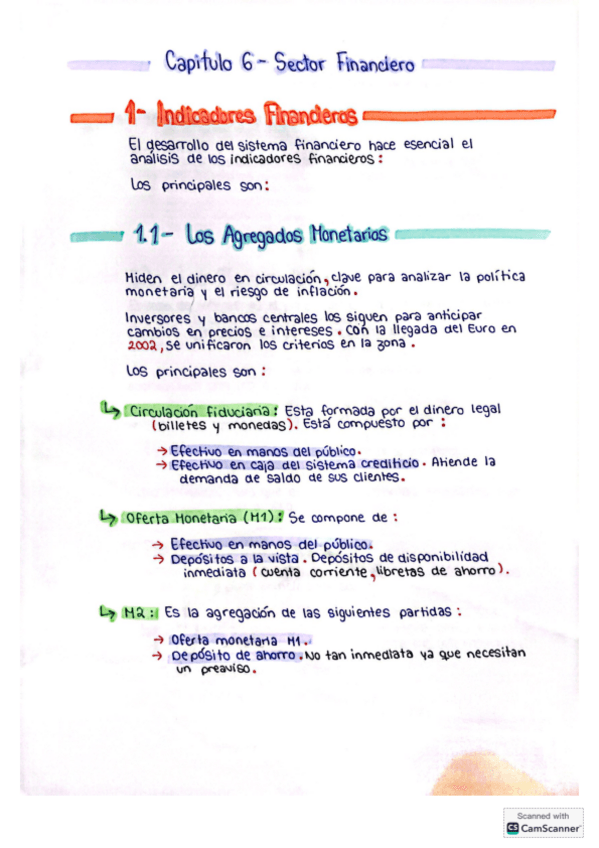 Capitulo 6 - Sector Financiero
1- Indicadores Financieros
El desarrollo del sistema financiero hace esencial el
análisis de los indicadores financieros :
Los principales son :
1.1- Los Agregados Monetarios
Miden el dinero en circulación, clave para analizar la política
monetaria y el riesgo de inflación.
Inversores y bancos centrales los siguen para anticipar
cambios en precios e intereses. Con la llegada del Euro en
2002, se unificaron los criterios en la zona.
Los principales son :
↳ Circulación fiduciaria : Esta formada por el dinero legal
(billetes y monedas). Está compuesto por :
→ Efectivo en manos del público.
→ Efectivo en caja del sistema crediticio. Atiende la
demanda de saldo de sus clientes.
↳ Oferta Monetaria (M1) : Se compone de :
→ Efectivo en manos del público.
→ Depósitos a la vista. Depósitos de disponibilidad
inmediata (cuenta corriente, libretas de ahorro).
↳ M2 : Es la agregación de las siguientes partidas :
→ Oferta monetaria M1.
→ Depósito de ahorro. No tan inmediata ya que necesitan
un preaviso.
Scanned with
CS CamScanner